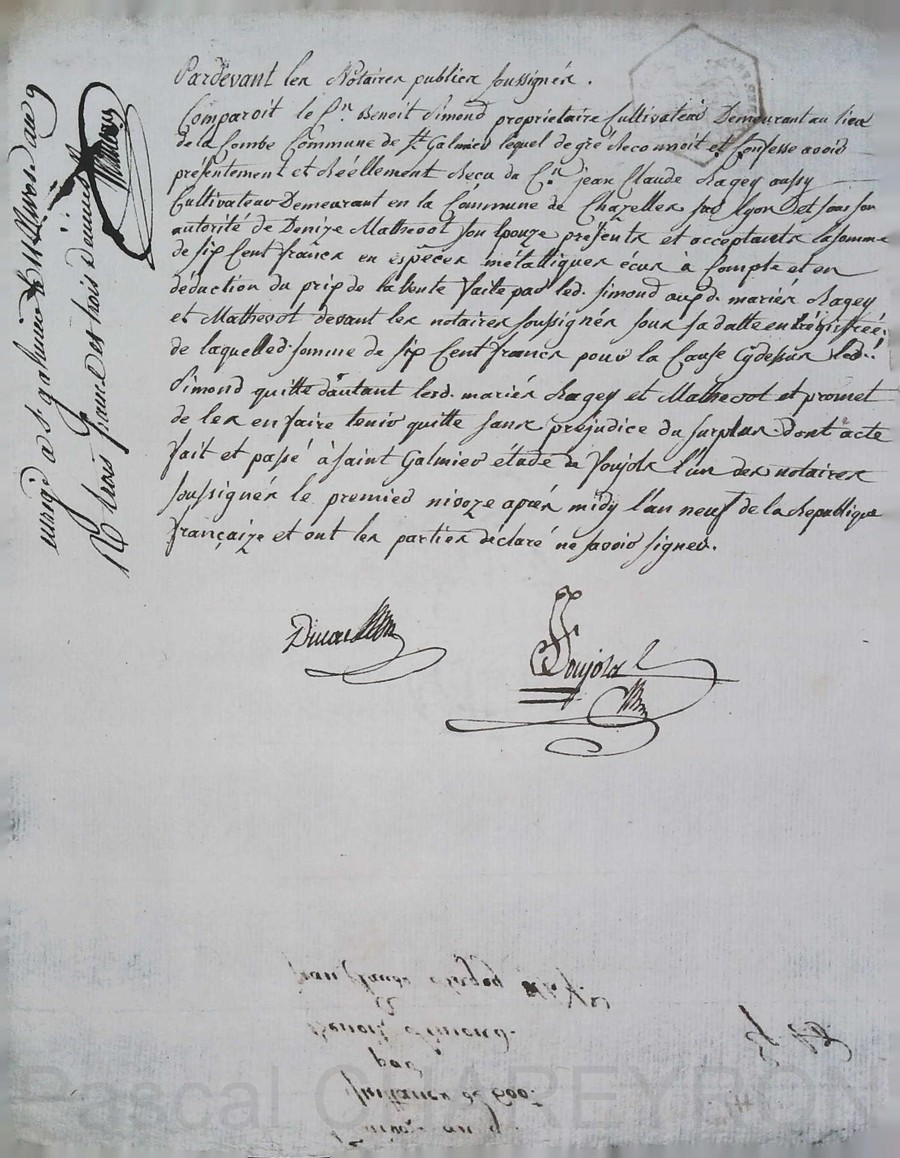 Pardevant les Notaires publics soussignés.
Comparoit le C.n Benoit Simond propriétaire Cultivateur Demeurant au lieu
de la Combe Commune de St Galmier lequel de gré Reconnoit et Confesse avoir
présentement et Réellement Recu du C.n jean Claude Ragey aussy
Cultivateur Demeurant en la Commune de Chazelles sur lyon Et sous son
autorité de Denize Mathevot son Epouze présents et acceptants la somme
de six Cent francs en espèces métalliques écus à Compte et en
déduction du prix de la vente faite par led. Simond aux d. mariés Ragey
et Mathevot devant les notaires soussignés sous sa datte enrégistrée.
de laquelle d. somme de six Cent francs pour la Cause Cydessus led.
Simond quitte dautant lesd. mariés Ragey et Mathevot et promet
de les en faire tenir quitte sans préjudice du surplus. Dont acte
fait et passé à Saint Galmier étude de Poujols l'un des notaires
soussignés le premier nivoze après midy l'an neuf de la République
françaize et ont les parties déclaré ne savoir signer.
Poujols
enregé a St galmier le 11 Nivose an 9
R trois francs et trois decimes
jean Claude Ragey
a
Benoit Simond
par
quittance de 600
nivoze an 9
Pascal CHAREYRON